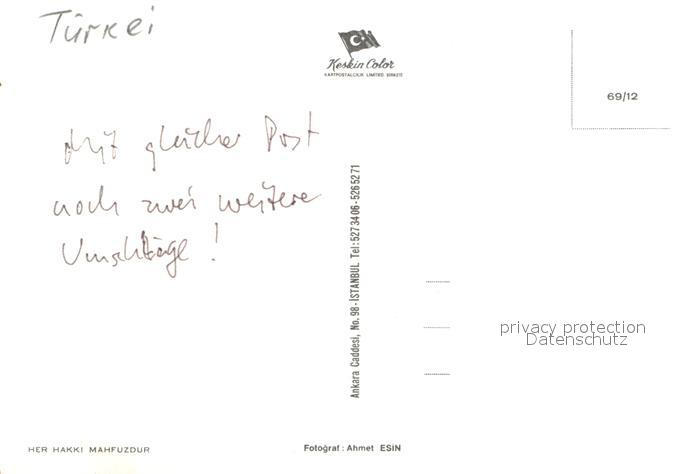 Türkei
Keskin Color
KARTPOSTALCILIK LIMITED ŞİRKETİ
69/12
Mit gleicher Post
noch zwei weitere
Umschläge !
Ankara Caddesi, No. 98 - İSTANBUL Tel: 5273406 - 5265271
privacy protection
Datenschutz
HER HAKKI MAHFUZDUR
Fotoğraf : Ahmet ESİN